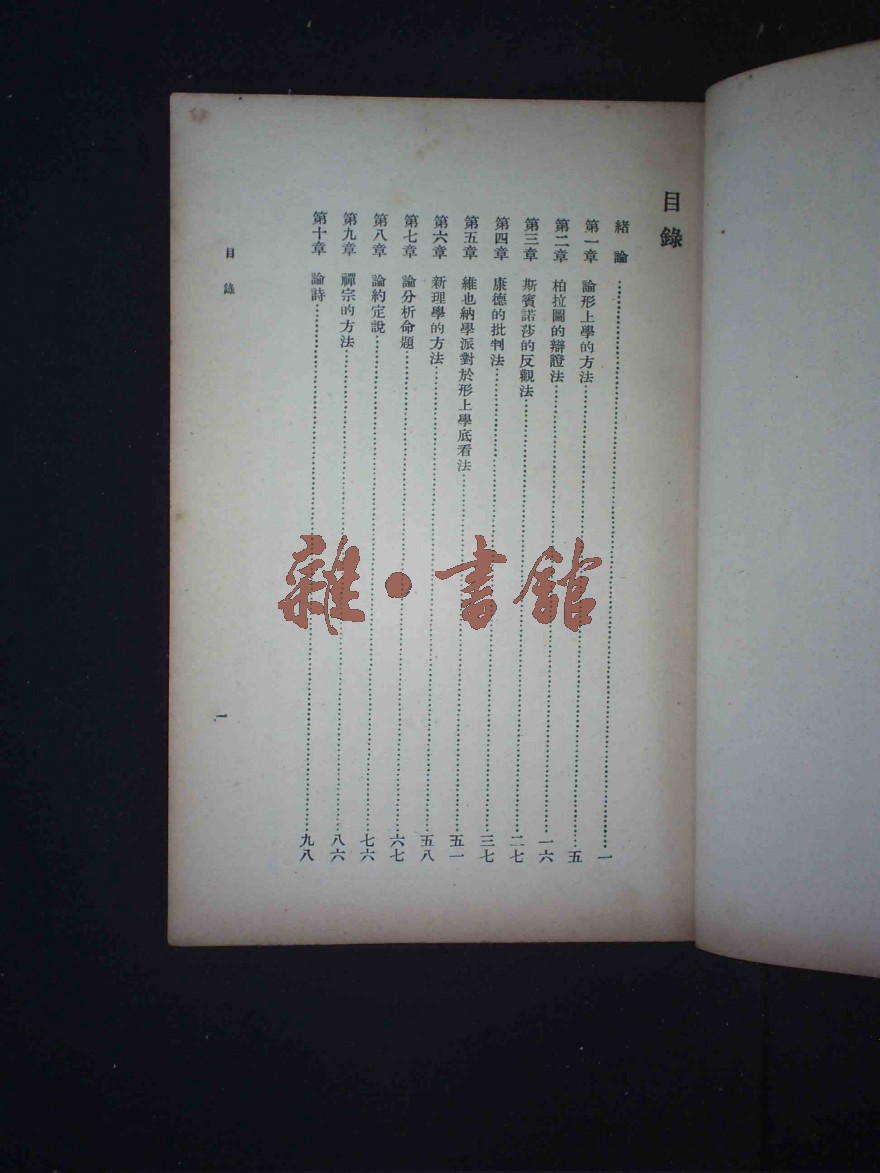 目錄
緒論……一
第一章 論形上學的方法……五
第二章 柏拉圖的辯證法……一六
第三章 斯賓諾莎的反觀法……二七
第四章 康德的批判法……三七
第五章 維也納學派對於形上學底看法……五一
第六章 新理學的方法……五八
第七章 論分析命題……六七
第八章 論約定說……七六
第九章 禪宗的方法……八六
第十章 論詩……九八
目錄
一
雜·書館